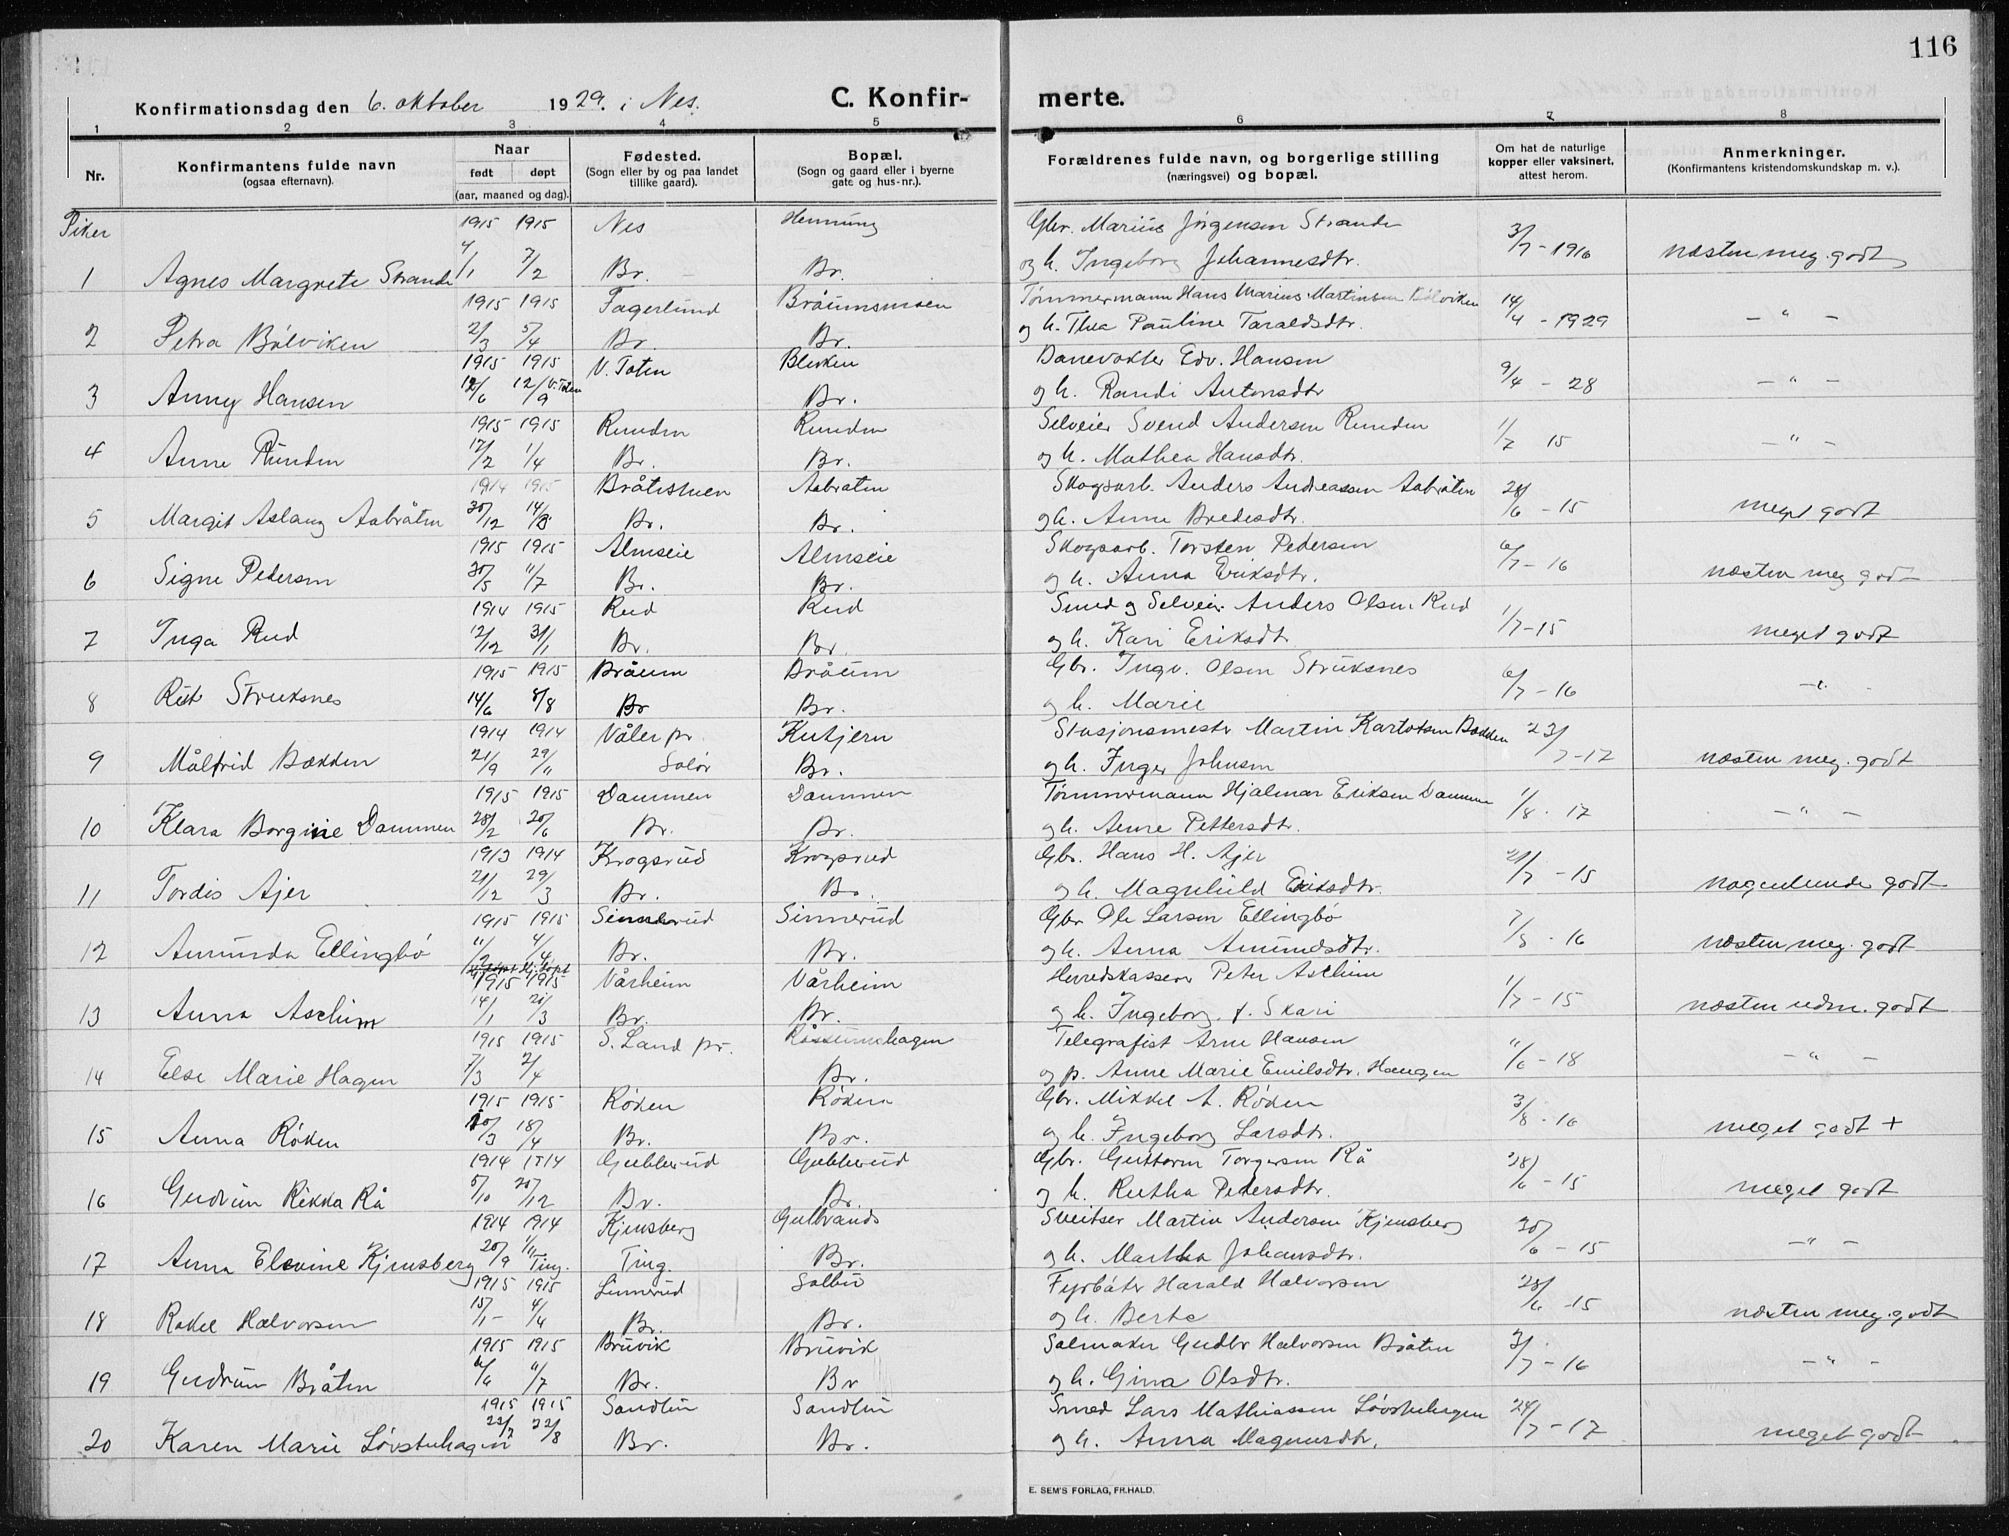 116
Konfirmationsdag den 6. oktober 1929. i Nes. C. Konfir- merte.
1 2 3 4 5 6 7 8
Nr. Konfirmantens fulde navn (ogsaa efternavn). Naar født døpt (aar, maaned og dag). Fødested. (Sogn eller by og paa landet tillike gaard). Bopæl. (Sogn og gaard eller i byerne gate og hus-nr.). Forældrenes fulde navn, og borgerlige stilling (næringsvei) og bopæl. Om hat de naturlige kopper eller vaksinert, attest herom. Anmerkninger. (Konfirmantens kristendomskundskap m. v.).
Piker 1915 1915 Nes Henning Gbr. Marius Jørgensen Strande
1 Agnes Margrete Strande 4/1 7/2 Br. Br. og h. Ingeborg Johannesdtr. 3/7 - 1916 næsten meg. godt
1915 1915 Fagerlund Bråumsmoen Tømmermann Hans Marius Martinsen Bølviken
2 Petra Bølviken 2/3 5/4 Br. Br. og h. Thea Pauline Taraldsdtr. 14/4 - 1929 - " -
1915 1915 V. Toten Blevken Banevokter Edv. Hansen
3 Anny Hansen 12/6 12/9 V. Toten Br. og h. Randi Antonsdtr 9/4 - 28 - " -
1915 1915 Runden Runden Selveier Svend Andersen Runden
4 Anne Runden 17/2 1/4 Br. Br. og h. Mathea Hansdtr. 1/7 15 - " -
1914 1915 Bråtestuen Aabråten Skogsarb. Anders Andreassen Aabråten
5 Margit Aslaug Aabråten 30/12 14/3 Br. Br. og h. Anne Bredesdtr. 28/6 - 15 meget godt
1915 1915 Almseie Almseie Skogsarb. Torsten Pedersen
6 Signe Pedersen 30/5 11/7 Br. Br. og h. Anna Eriksdtr. 6/7 - 16 næsten meg godt
1914 1915 Rud Rud Smed og Selveier Anders Olsen Rud
7 Inga Rud 12/12 31/1 Br. Br. og h. Kari Eriksdtr. 1/7 - 15 meget godt
1915 1915 Bråum Bråum Gbr. Ingv. Olsen Struksnes
8 Rut Struksnes 14/6 8/8 Br Br. og h. Marie 6/7 - 16 - " -
1914 1914 Våler pr. Kutjern Stasjonsmester Martin Bækken
9 Målfrid Bækken 21/9 29/11 Solør Br. og h. Inger Johnsen 23/7 - 17 næsten meg. godt
1915 1915 Dammen Dammen Tømmermann Hjalmar Eriksen Dammen
10 Klara Borgine Dammen 28/2 20/6 Br. Br. og h. Anne Pettersdtr. 1/8 - 17 - " -
1913 1914 Krogsrud Krogsrud Gbr. Hans H. Ajer
11 Tordis Ajer 21/12 29/3 Br. Br. og h. Magnhild Eriksdtr. 21/7 - 15 nogenlunde godt
1915 1915 Sinnerud Sinnerud Gbr Ole Larsen Ellingbø
12 Amunda Ellingbø 11/2 4/4 Br. Br. og h. Anna Amundsdtr. 7/5 - 16 næsten meg. godt
1915 1915 Vårheim Vårheim Herredskasserer Peter Aschim
13 Anna Aschim 14/1 21/3 Br. Br. og h. Ingeborg f. Skari 1/7 - 15 næsten udm. godt
1915 1915 S. Land pr. Røssumshagen Telegrafist Arne Hansen
14 Else Marie Hagen 7/3 2/4 Br. og p. Anne Marie Emilsdtr. Haugen 11/6 - 18 - " -
1915 1915 Røken Røken Gbr. Mikkel A. Røken
15 Anna Røken 10/3 18/4 Br. Br. og h. Ingeborg Larsdtr. 3/8 - 16 meget godt +
1914 1914 Gublerud Gublerud Gbr. Guttorm Torgersen Rå
16 Gudrun Rikka Rå 5/10 20/12 Br. Br. og h. Rutha Pedersdtr. 28/6 - 15 meget godt
1914 1914 Kjensberg Gulbrands Sveitser Martin Andersen Kjensberg
17 Anna Elevine Kjensberg 20/9 1/11 Ting. Ting. Br. og h. Martha Johansdtr. 30/6 - 15 - " -
1915 1915 Linnerud Solbu Fyrbøter Harald Halvorsen
18 Rakel Halvorsen 15/1 4/4 Br. Br. og h. Berte 28/6 - 15 næsten meg. godt
1915 1915 Bruvik Bruvik Salmaker Gudbr Halvorsen Bråten
19 Gudrun Bråten 6/6 11/7 Br. Br og h. Gina Olsdtr. 3/7 - 16 - " -
1915 1915 Sandlün Sandlün Smed Lars Mathiassen Løvstuhagen
20 Karen Marie Løvstuhagen 22/7 22/8 Br. Br. og h. Anna Magnusdtr. 24/7 - 17 meget godt
E. SEM'S FORLAG, FR.HALD.